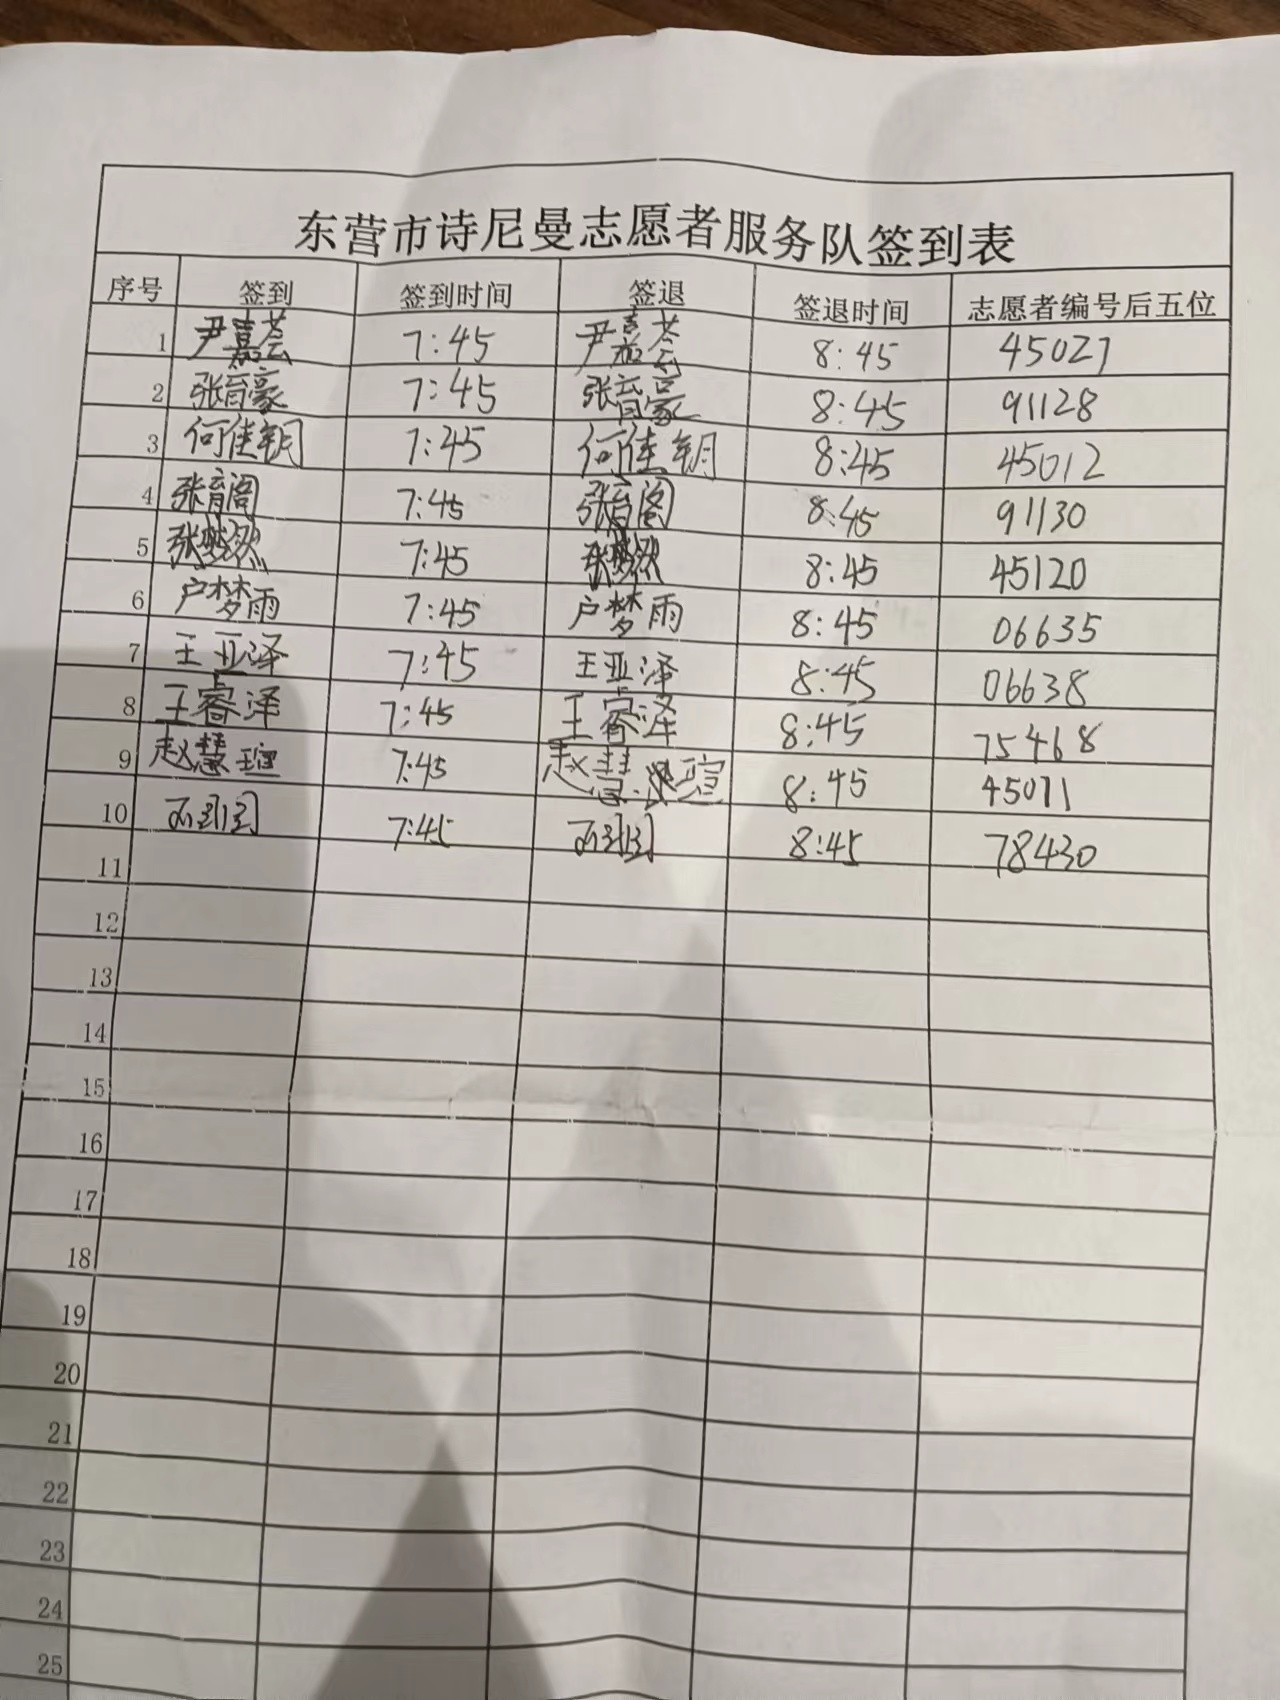 东营市诗尼曼志愿者服务队签到表
序号 签到 签到时间 签退 签退时间 志愿者编号后五位
1 尹嘉荟 7:45 尹嘉荟 8:45 45027
2 张育豪 7:45 张育豪 8:45 91128
3 何佳钥 7:45 何佳钥 8:45 45012
4 张育阁 7:45 张育阁 8:45 91130
5 张梦然 7:45 张梦然 8:45 45120
6 卢梦雨 7:45 卢梦雨 8:45 06635
7 王亚泽 7:45 王亚泽 8:45 06638
8 王睿泽 7:45 王睿泽 8:45 75468
9 赵慧瑄 7:45 赵慧瑄 8:45 45071
10 7:45 8:45 78430
11
12
13
14
15
16
17
18
19
20
21
22
23
24
25